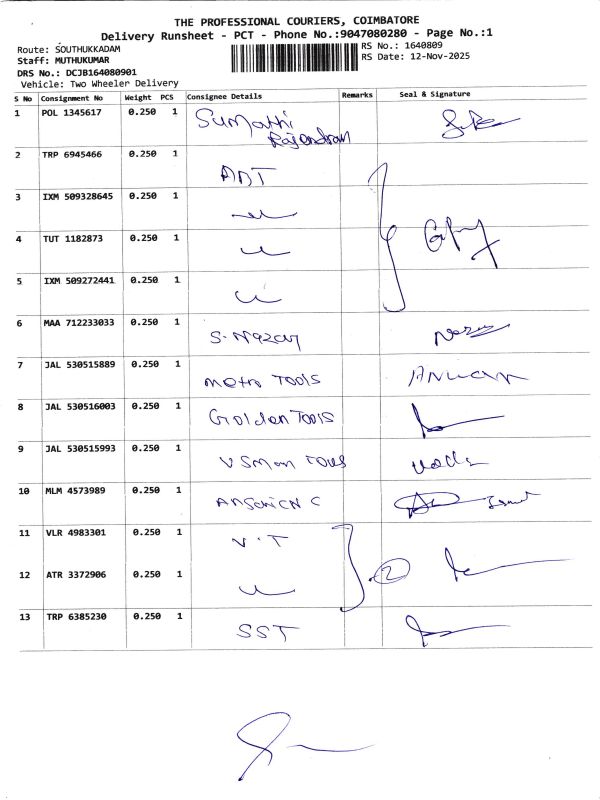 THE PROFESSIONAL COURIERS, COIMBATORE
Delivery Runsheet - PCT - Phone No.:9047080280 - Page No.:1
Route: SOUTHUKKADAM
RS No.: 1640809
Staff: MUTHUKUMAR
RS Date: 12-Nov-2025
DRS No.: DCJB164080901
Vehicle: Two Wheeler Delivery
S No Consignment No Weight PCS Consignee Details Remarks Seal & Signature
1 POL 1345617 0.250 1 Sumathi
Rajendran
2 TRP 6945466 0.250 1 ADT
3 IXM 509328645 0.250 1
4 TUT 1182873 0.250 1
5 IXM 509272441 0.250 1
6 MAA 712233033 0.250 1 S. Nazar
7 JAL 530515889 0.250 1 metro TOOLS
8 JAL 530516003 0.250 1 Golden TOOLS
9 JAL 530515993 0.250 1
10 MLM 4573989 0.250 1
11 VLR 4983301 0.250 1 V.T
12 ATR 3372906 0.250 1 2
13 TRP 6385230 0.250 1 SST